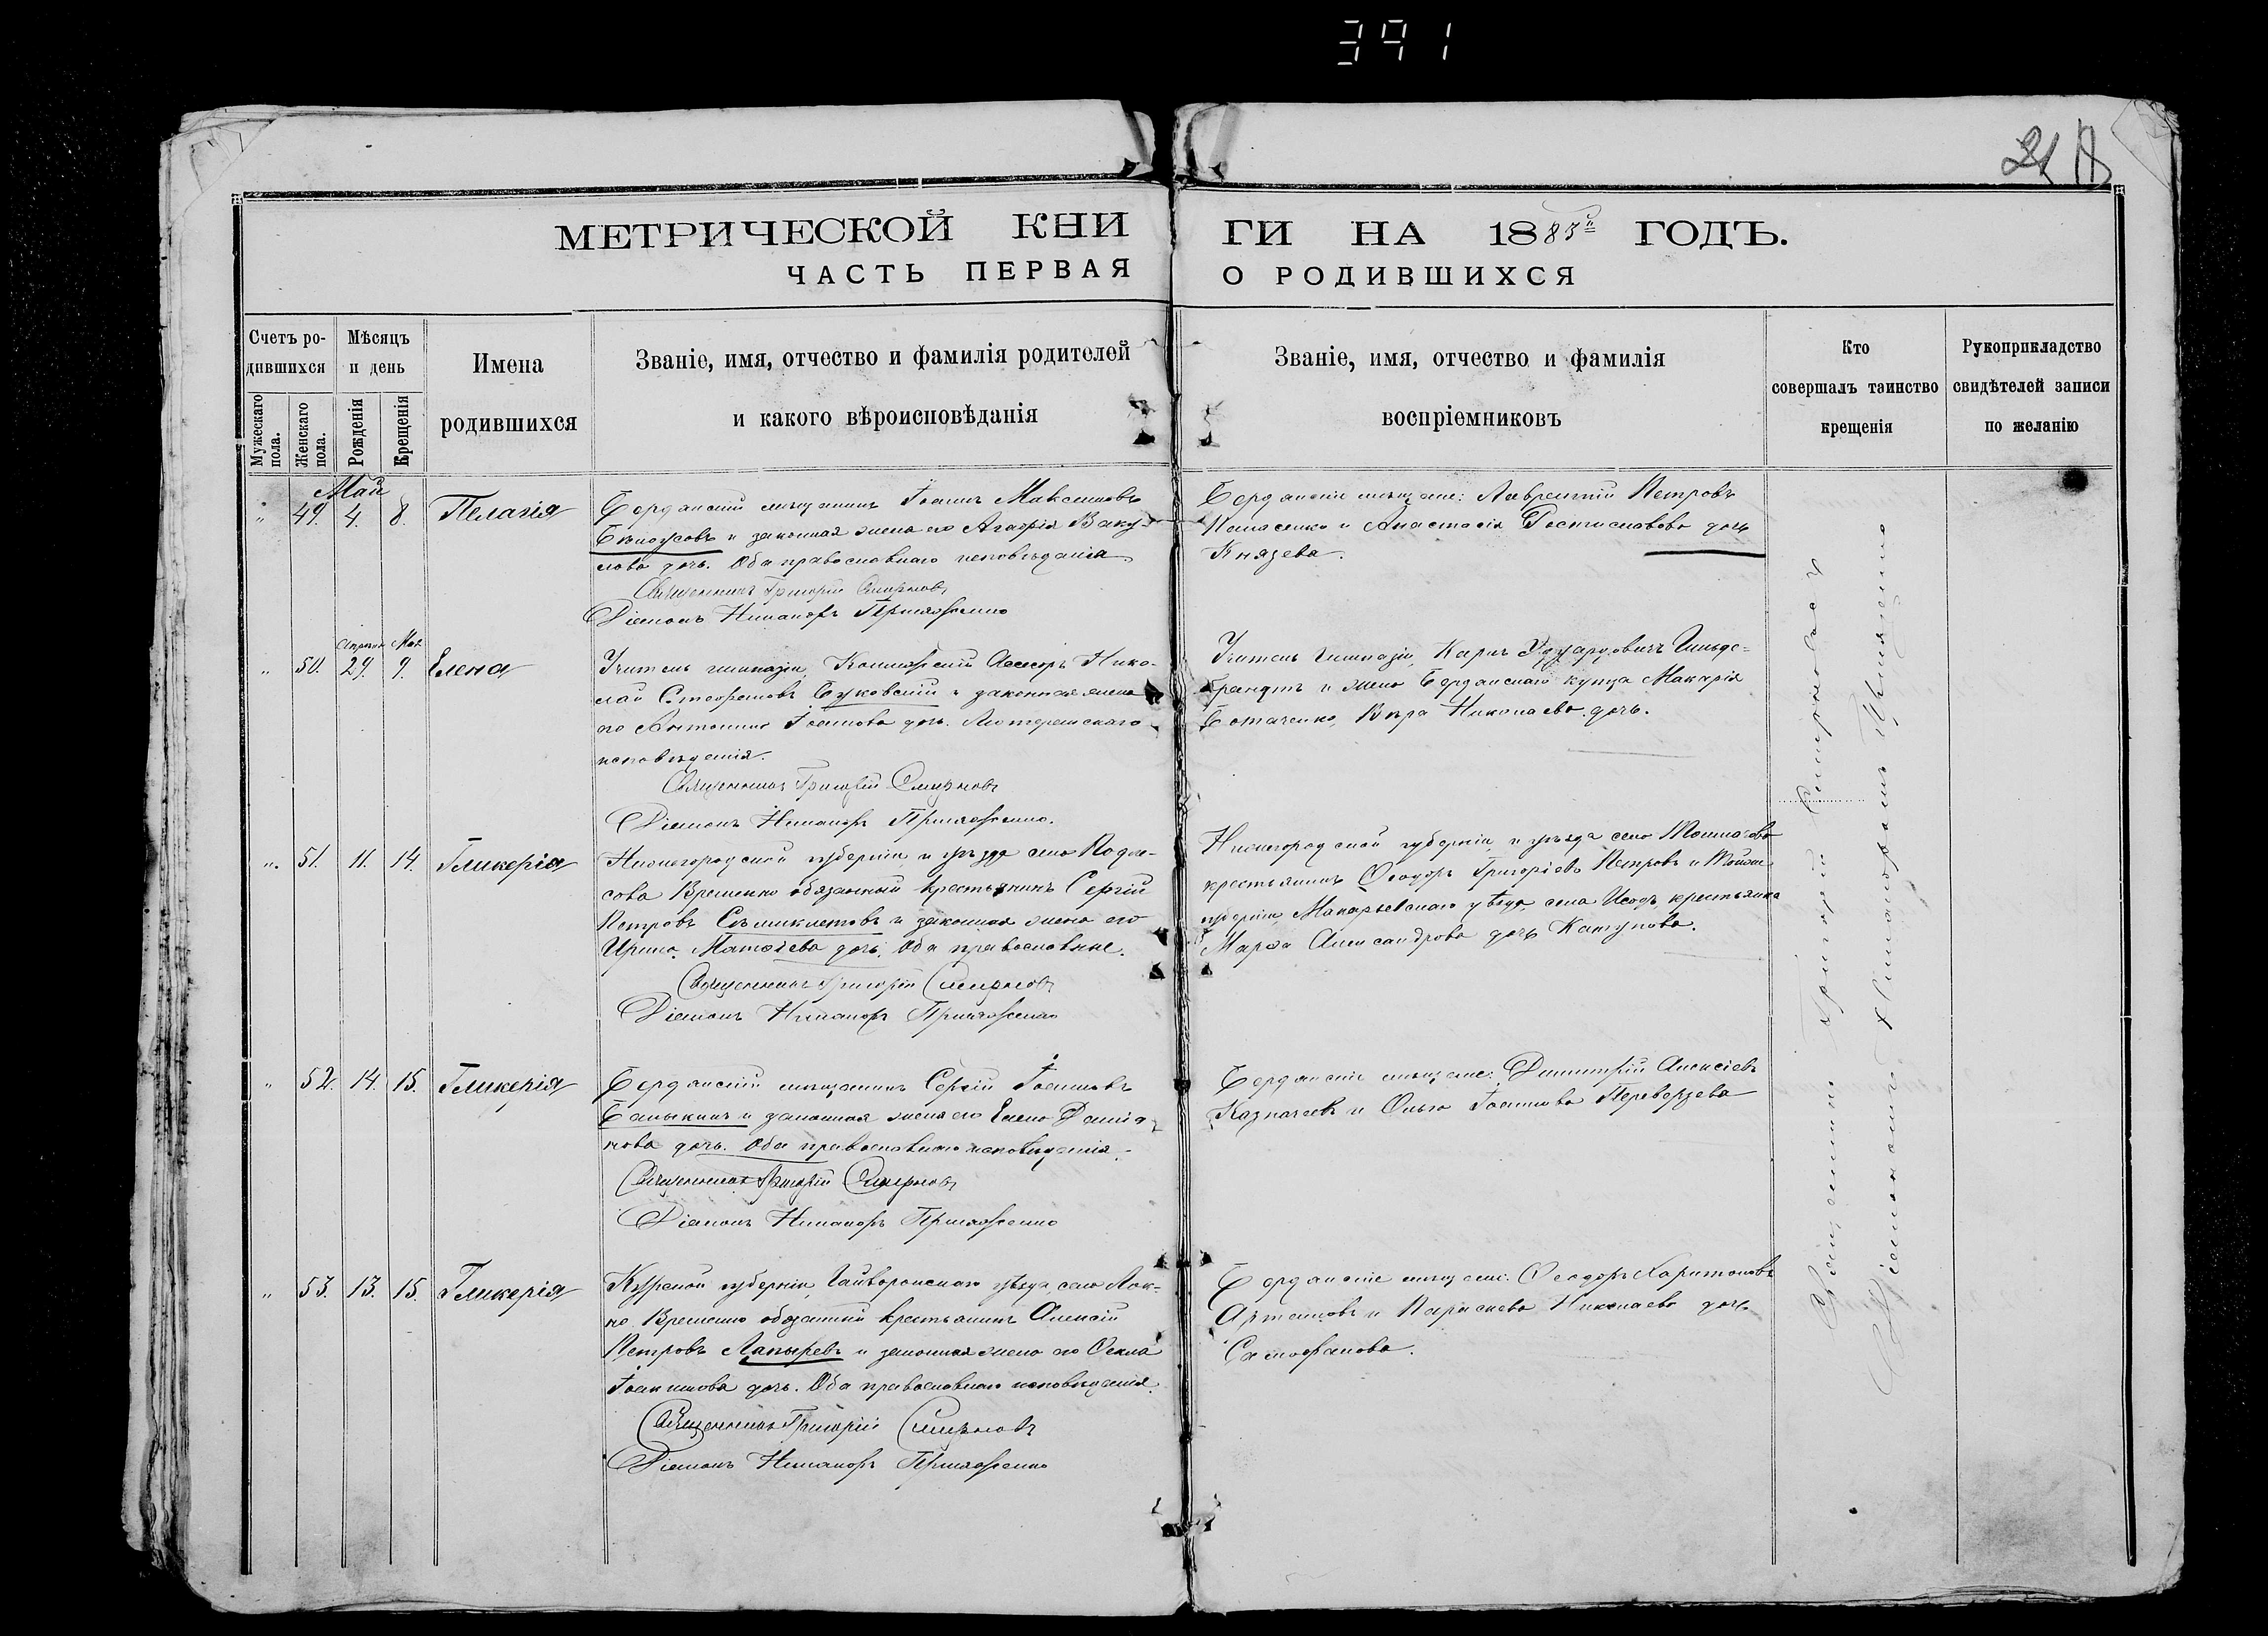 391
МЕТРИЧЕСКОЙ КНИ
ГИ НА 1883й ГОДЪ.
ЧАСТЬ ПЕРВАЯ
О РОДИВШИХСЯ
Счетъ ро-
дившихся
Мѣсяцъ
и день
Имена
родившихся
Званіе, имя, отчество и фамилія родителей
и какого вѣроисповѣданія
Званіе, имя, отчество и фамилія
воспріемниковъ
Кто
совершалъ таинство
крещенія
Рукоприкладство
свидѣтелей записи
по желанію
Мужескаго
пола.
Женскаго
пола.
Рожденія
Крещенія
Май
49. 4. 8. Пелагія
Бердянскій мѣщанинъ Іоаннъ Максимовъ
Бѣлоусовъ и законная жена его Агафія Ваку-
лова дочь. Оба православнаго исповѣданія
Священникъ Григорій Смирновъ
Діаконъ Никаноръ
Бердянскіе мѣщане: Лаврентій Петровъ
и Анастасія Ростиславова дочь
Князева.
Апрѣля Мая
50. 29. 9. Елена
Учитель гимназіи, Коллежскій Асесоръ Нико-
лай Стефановъ Буковскій и законная жена
его Антонина Іоаннова дочь. Лютеранскаго
исповѣданія.
Священникъ Григорій Смирновъ
Діаконъ Никаноръ
Учитель гимназіи, Карлъ Эдуардовичъ Гильде-
брандтъ и жена Бердянскаго купца Макарія
Вѣра Николаева дочь.
51. 11. 14. Гликерія
Нижегородской губерніи и уѣзда села Подле-
сова Временно обязанный крестьянинъ Сергій
Петровъ и законная жена его
Ирина Матѳеева дочь. Оба православные.
Священникъ Григорій Смирновъ
Діаконъ Никаноръ
Нижегородской губерніи и уѣзда села
крестьянинъ Ѳеодоръ Григоріевъ Петровъ и
губерніи, Макарьевскаго уѣзда, села крестьянка
Марѳа Александрова дочь Катунова.
52. 14. 15. Гликерія
Бердянскій мѣщанинъ Сергій Іоанновъ
Балыкинъ и законная жена его Елена Даміа-
нова дочь. Оба православнаго исповѣданія.
Священникъ Григорій Смирновъ
Діаконъ Никаноръ
Бердянскіе мѣщане: Димитрій Алексіевъ
Казначеевъ и Ольга Іоаннова Переверзева
53. 13. 15. Гликерія
Курской губерніи, Грайворонскаго уѣзда, села Лок-
ни Временно обязанный крестьянинъ Алексій
Петровъ Лапыревъ и законная жена его Ѳекла
Іоакимова дочь. Оба православнаго исповѣданія.
Священникъ Григорій Смирновъ
Діаконъ Никаноръ
Бердянскіе мѣщане: Ѳеодоръ Харитоновъ
Артемовъ и Параскева Николаева дочь
Священникъ Григорій Смирновъ и
Діаконъ Никаноръ